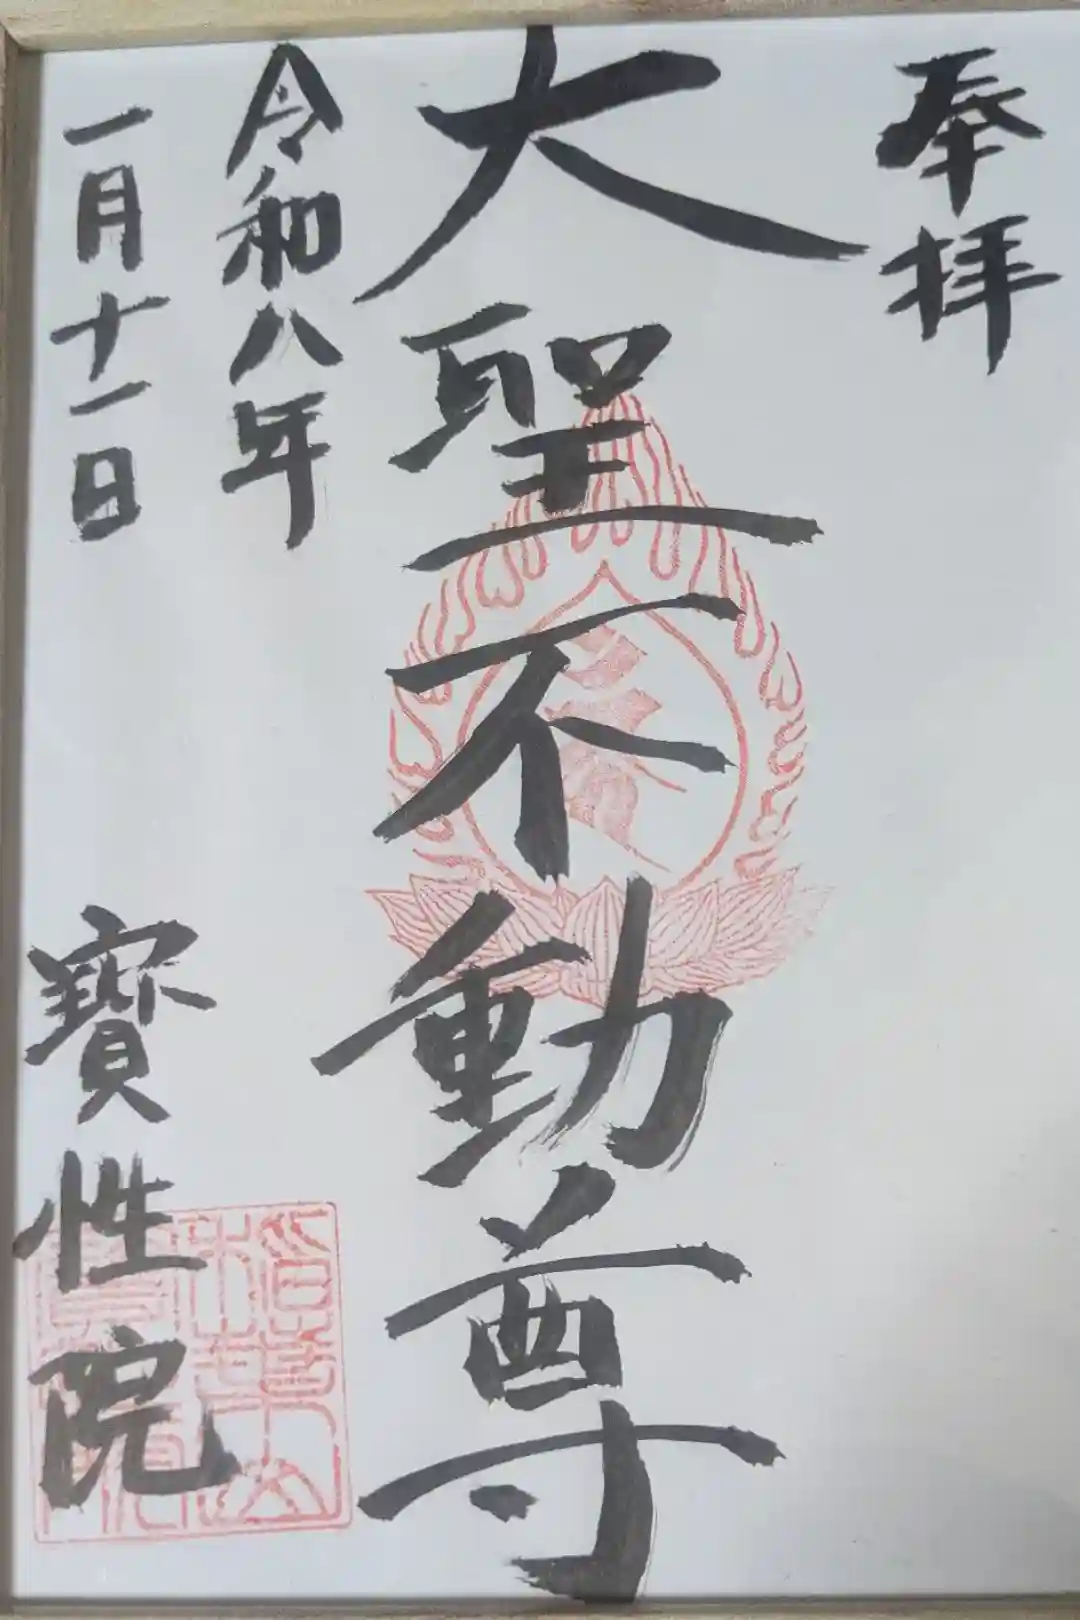 奉拝
大聖不動尊
令和八年
一月十一日
寶性院